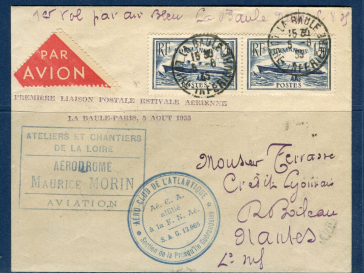 1er vol par air Bleu La Baule
PAR
AVION
RF
POSTES
RF
POSTES
LA BAULE
15 30
PREMIÈRE LIAISON POSTALE ESTIVALE AÉRIENNE
LA BAULE-PARIS, 5 AOUT 1935
ATELIERS ET CHANTIERS
DE LA LOIRE
AÉRODROME
MAURICE MORIN
AVIATION
AÉRO-CLUB DE L'ATLANTIQUE
Aé. C. A.
affilié
à la F. N. Aé.
S. A. G.
Section de la Presqu'île Guérandaise
Monsieur Terrasse
Crédit Lyonnais
Nantes